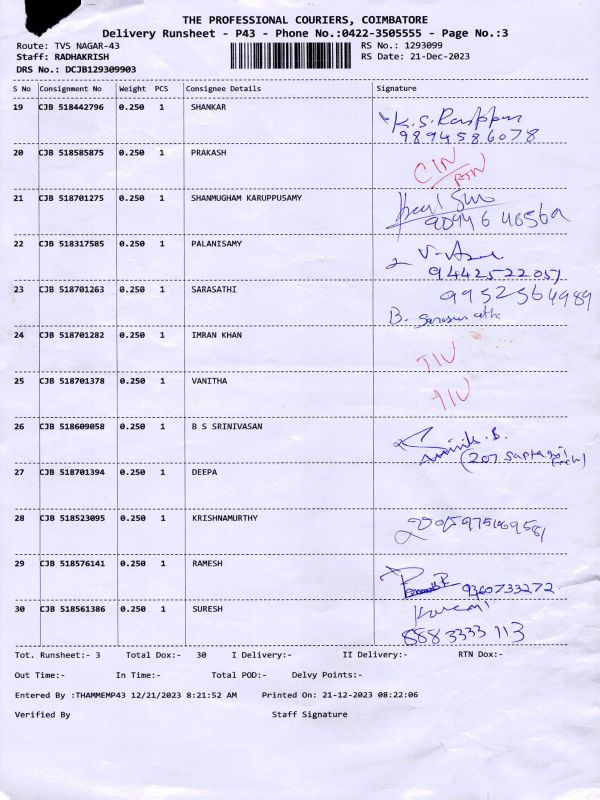 THE PROFESSIONAL COURIERS, COIMBATORE
Delivery Runsheet - P43 - Phone No.:0422-3505555 - Page No.:3
Route: TVS NAGAR-43 RS No.: 1293099
Staff: RADHAKRISH RS Date: 21-Dec-2023
DRS No.: DCJB129309903
S No Consignment No Weight PCS Consignee Details Signature
19 CJB 518442796 0.250 1 SHANKAR
9894586078
20 CJB 518585875 0.250 1 PRAKASH CIN
RTN
21 CJB 518701275 0.250 1 SHANMUGHAM KARUPPUSAMY
22 CJB 518317585 0.250 1 PALANISAMY
9442522051
23 CJB 518701263 0.250 1 SARASATHI 9952564989
B.
24 CJB 518701282 0.250 1 IMRAN KHAN
25 CJB 518701378 0.250 1 VANITHA
26 CJB 518609058 0.250 1 B S SRINIVASAN
(207
27 CJB 518701394 0.250 1 DEEPA
28 CJB 518523095 0.250 1 KRISHNAMURTHY
29 CJB 518576141 0.250 1 RAMESH 9360733272
30 CJB 518561386 0.250 1 SURESH
8883333 113
Tot. Runsheet:- 3 Total Dox:- 30 I Delivery:- II Delivery:- RTN Dox:-
Out Time:- In Time:- Total POD:- Delvy Points:-
Entered By :THAMMEMP43 12/21/2023 8:21:52 AM Printed On: 21-12-2023 08:22:06
Verified By Staff Signature